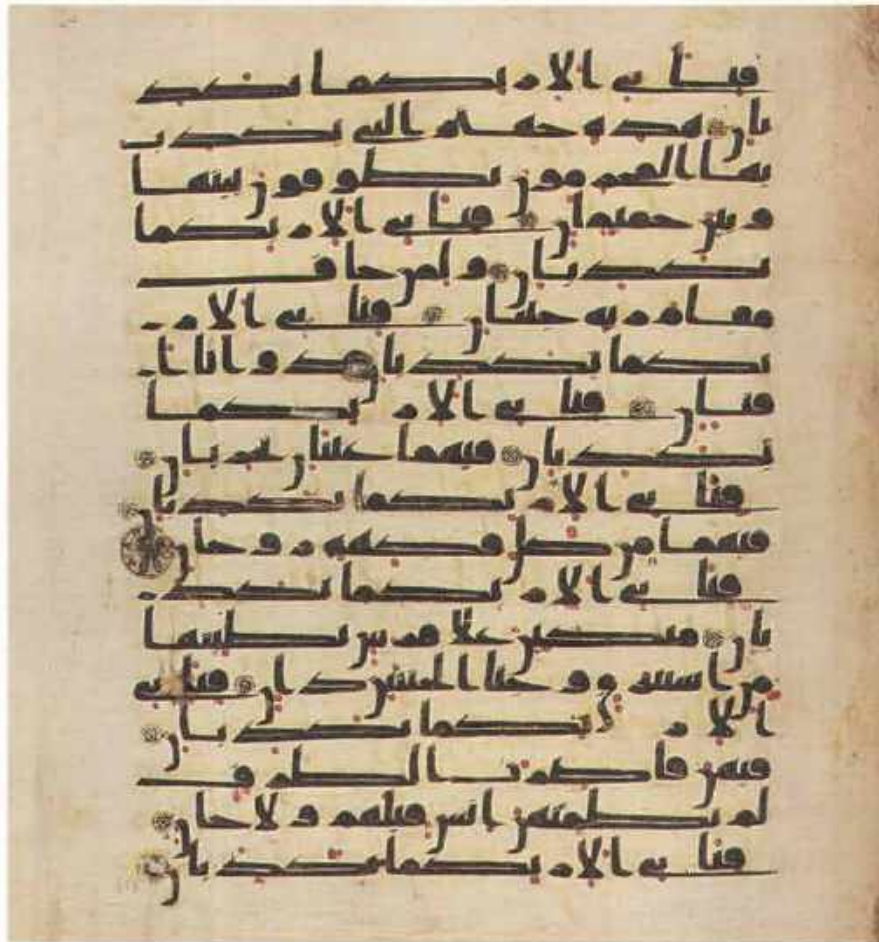 فباي الا ربكما تكذ
بان هذه جهنم التي يكذب
بها المجرمون يطوفون بينها
وبين حميم ان فباي الا ربكما
تكذبان ولمن خاف
مقام ربه جنتان فباي الا
ربكما تكذبان ذواتا ا
فنان فباي الا ربكما
تكذبان فيهما عينان تجريان
فباي الا ربكما تكذبان
فيهما من كل فكهة زوجان
فباي الا ربكما تكذ
بان متكين على فرش بطينها
من استبرق وجنا الجنتين دان فباي
الا ربكما تكذبان
فيهن قصرت الطرف
لم يطمثهن انس قبلهم ولا جان
فباي الا ربكما تكذبان